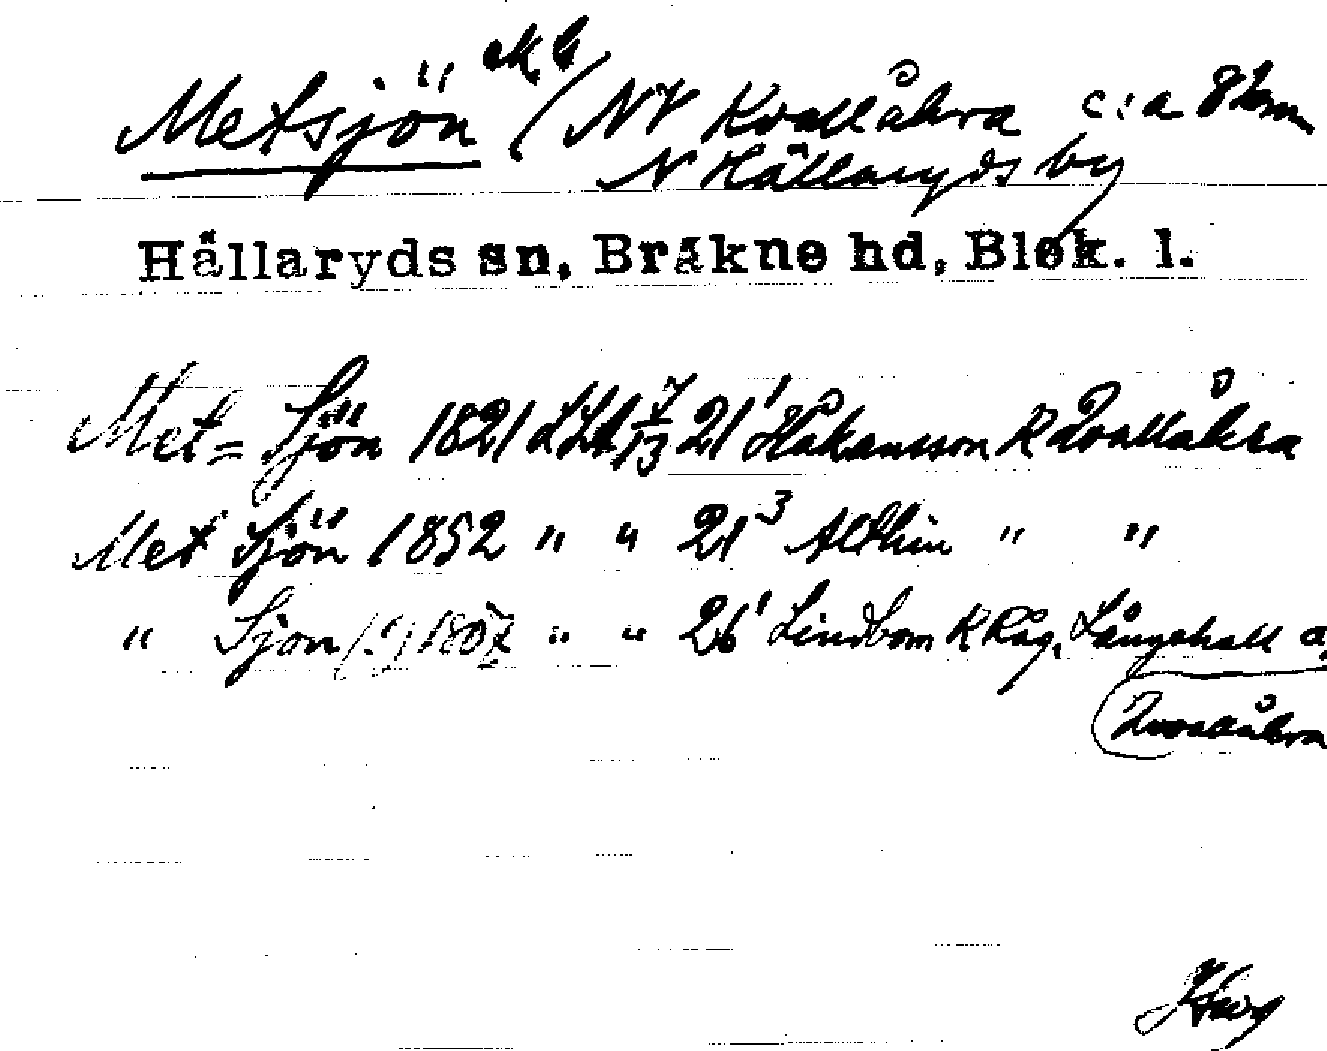 Metsjön / NV Kvallåkra c:a 8 km
N Hällaryds by
Hällaryds sn, Bräkne hd, Blek. l.
Met= Sjön 1821 21¹ Håkansson K Qvallåkra
Met Sjön 1852 " " 21³ Althin " "
" Sjon (!) 1807 " " 26¹ Lindbom K Råg. Långehall a.
Qvallåkra